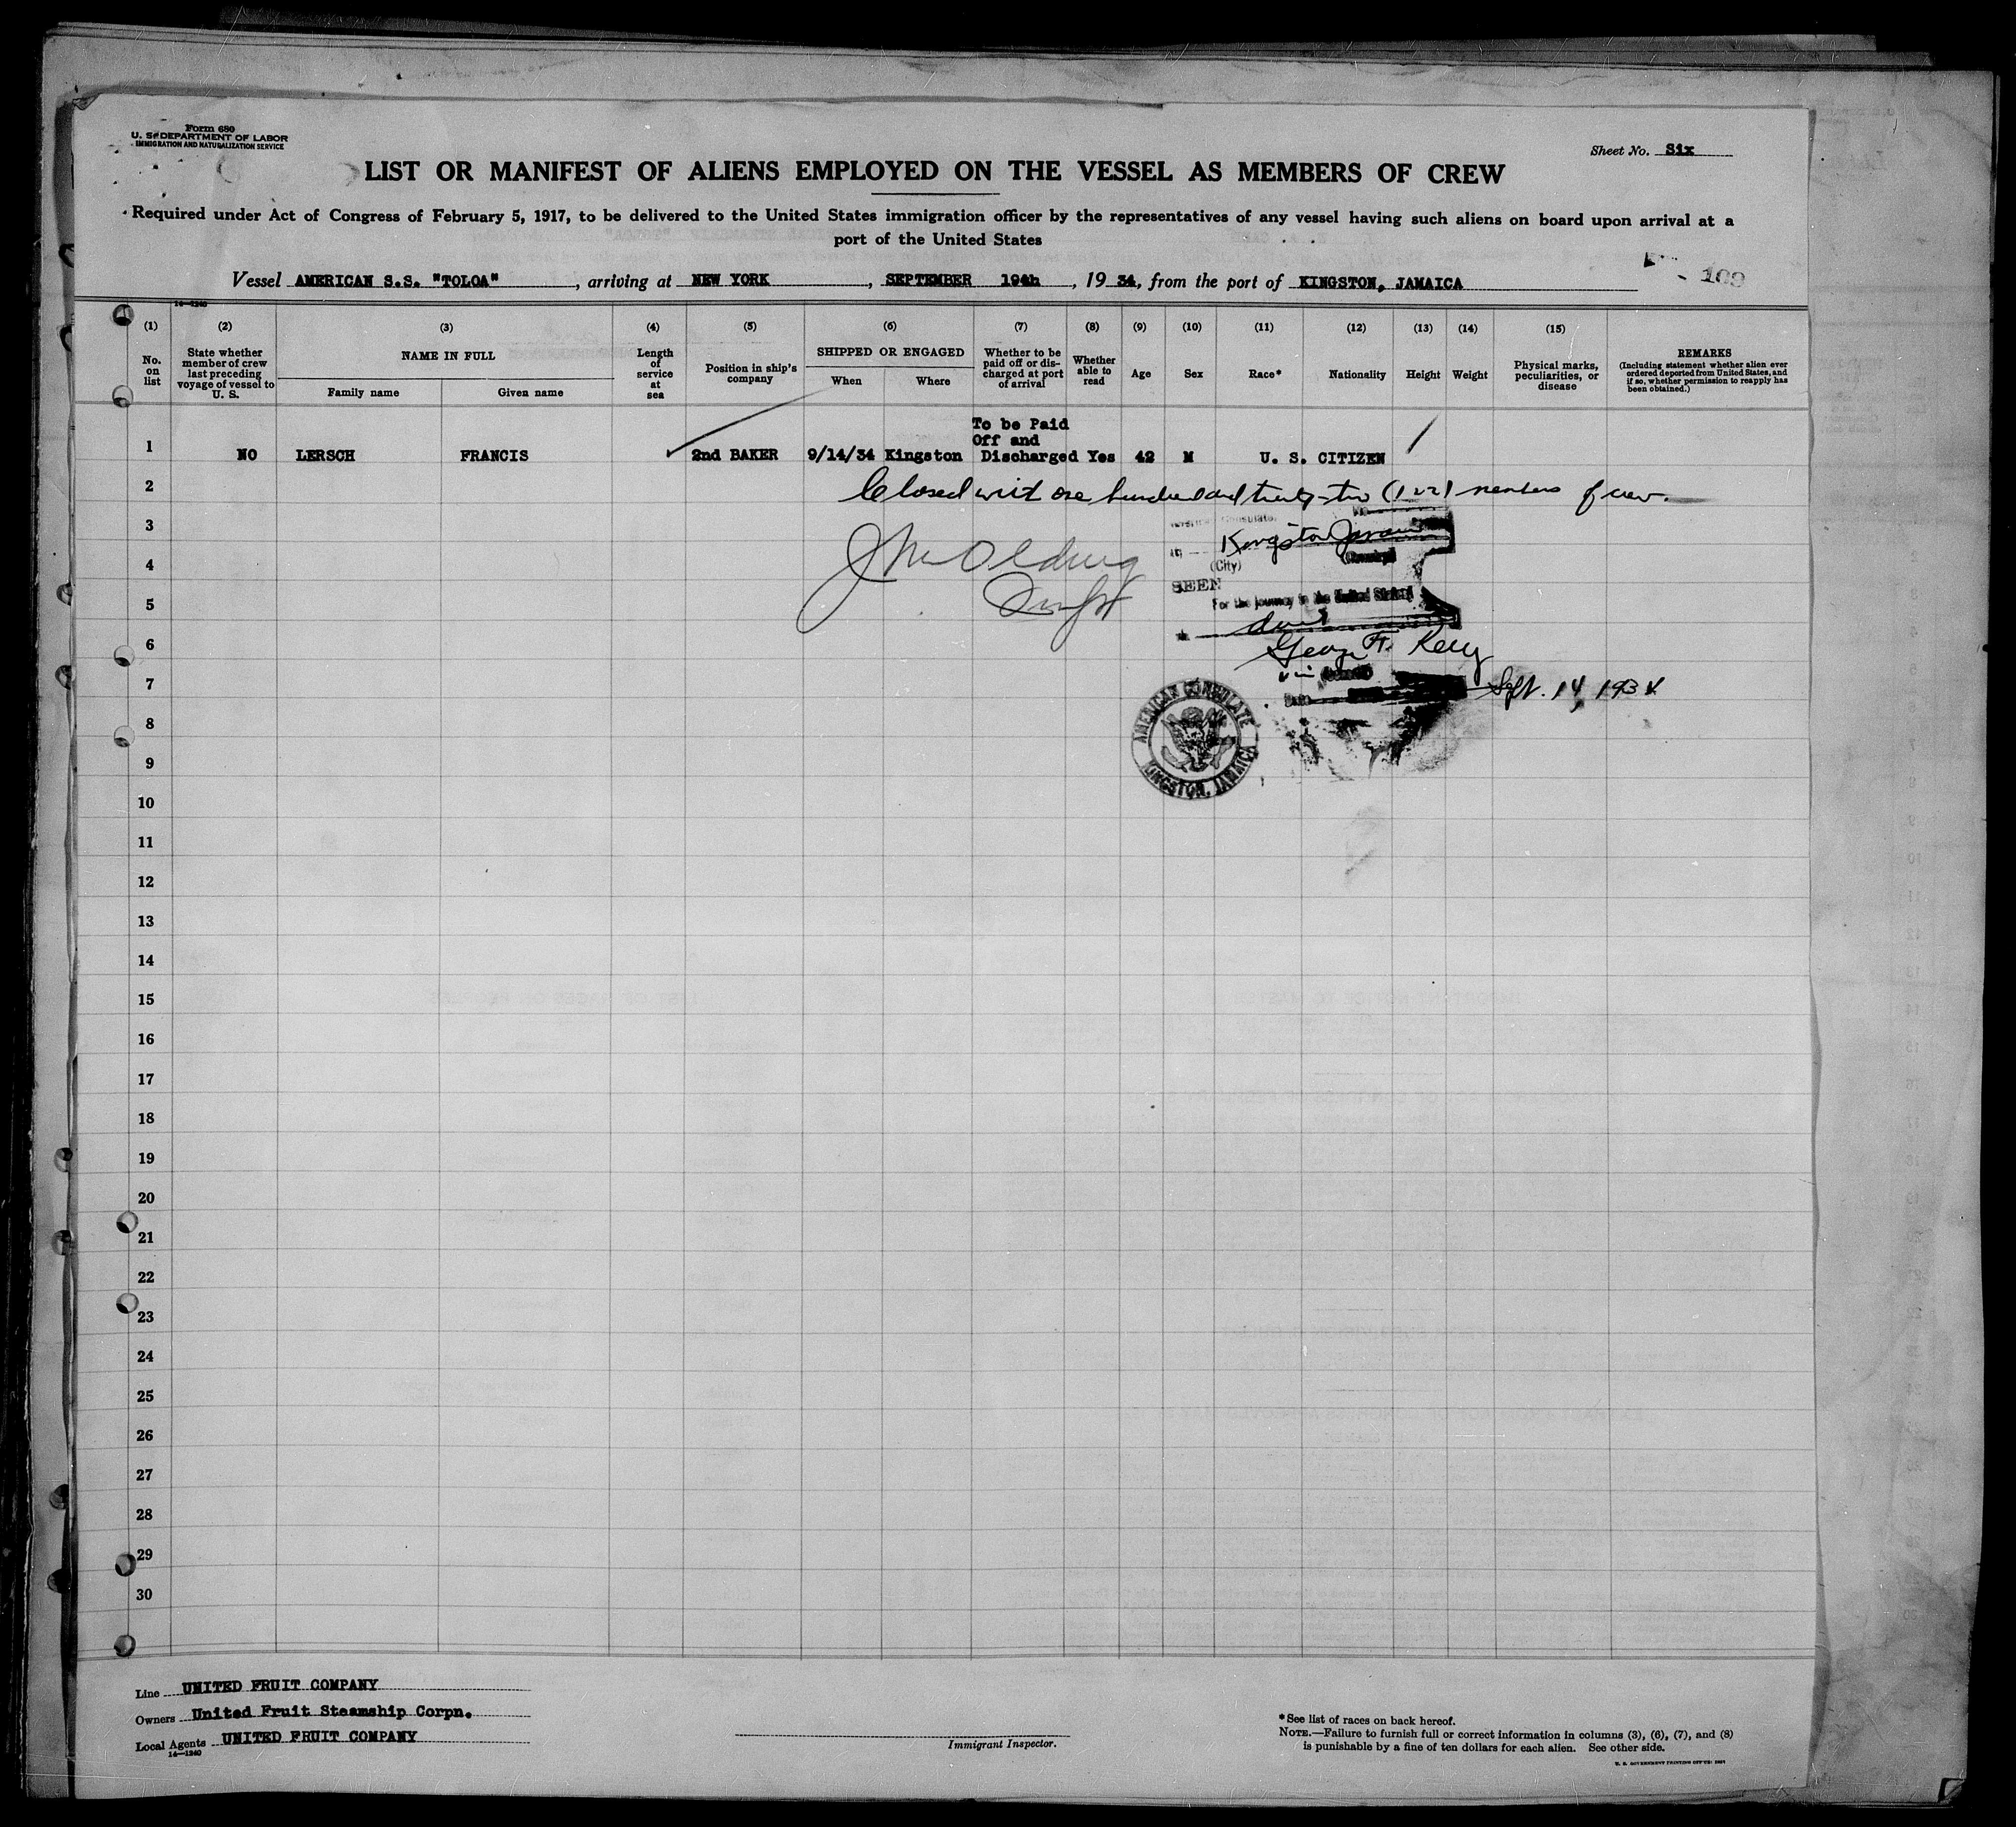 Form 680
U. S. DEPARTMENT OF LABOR
IMMIGRATION AND NATURALIZATION SERVICE
Sheet No. Six
LIST OR MANIFEST OF ALIENS EMPLOYED ON THE VESSEL AS MEMBERS OF CREW
Required under Act of Congress of February 5, 1917, to be delivered to the United States immigration officer by the representatives of any vessel having such aliens on board upon arrival at a
port of the United States
Vessel AMERICAN S.S. "TOLOA", arriving at NEW YORK, SEPTEMBER 19th, 1934, from the port of KINGSTON, JAMAICA
109
14—1240
(1) (2) (3) (4) (5) (6) (7) (8) (9) (10) (11) (12) (13) (14) (15)
No. on list
State whether member of crew last preceding voyage of vessel to U. S.
NAME IN FULL
Family name
Given name
Length of service at sea
Position in ship's company
SHIPPED OR ENGAGED
When
Where
Whether to be paid off or discharged at port of arrival
Whether able to read
Age
Sex
Race*
Nationality
Height
Weight
Physical marks, peculiarities, or disease
REMARKS
(Including statement whether alien ever ordered deported from United States, and if so, whether permission to reapply has been obtained.)
To be Paid
Off and
1 NO LERSCH FRANCIS 2nd BAKER 9/14/34 Kingston Discharged Yes 42 M U. S. CITIZEN
2 Closed with one hundred and twenty-two (122) members of crew.
3
Kingston Jamaica
4
(City) (Country)
SEEN
5
For the journey to the United States
6
George F. Kelly
7
Sept. 14, 1934
AMERICAN CONSULATE
KINGSTON, JAMAICA
8
9
10
11
12
13
14
15
16
17
18
19
20
21
22
23
24
25
26
27
28
29
30
Line UNITED FRUIT COMPANY
Owners United Fruit Steamship Corpn.
Local Agents UNITED FRUIT COMPANY
14—1240
Immigrant Inspector.
*See list of races on back hereof.
NOTE.—Failure to furnish full or correct information in columns (3), (6), (7), and (8)
is punishable by a fine of ten dollars for each alien. See other side.